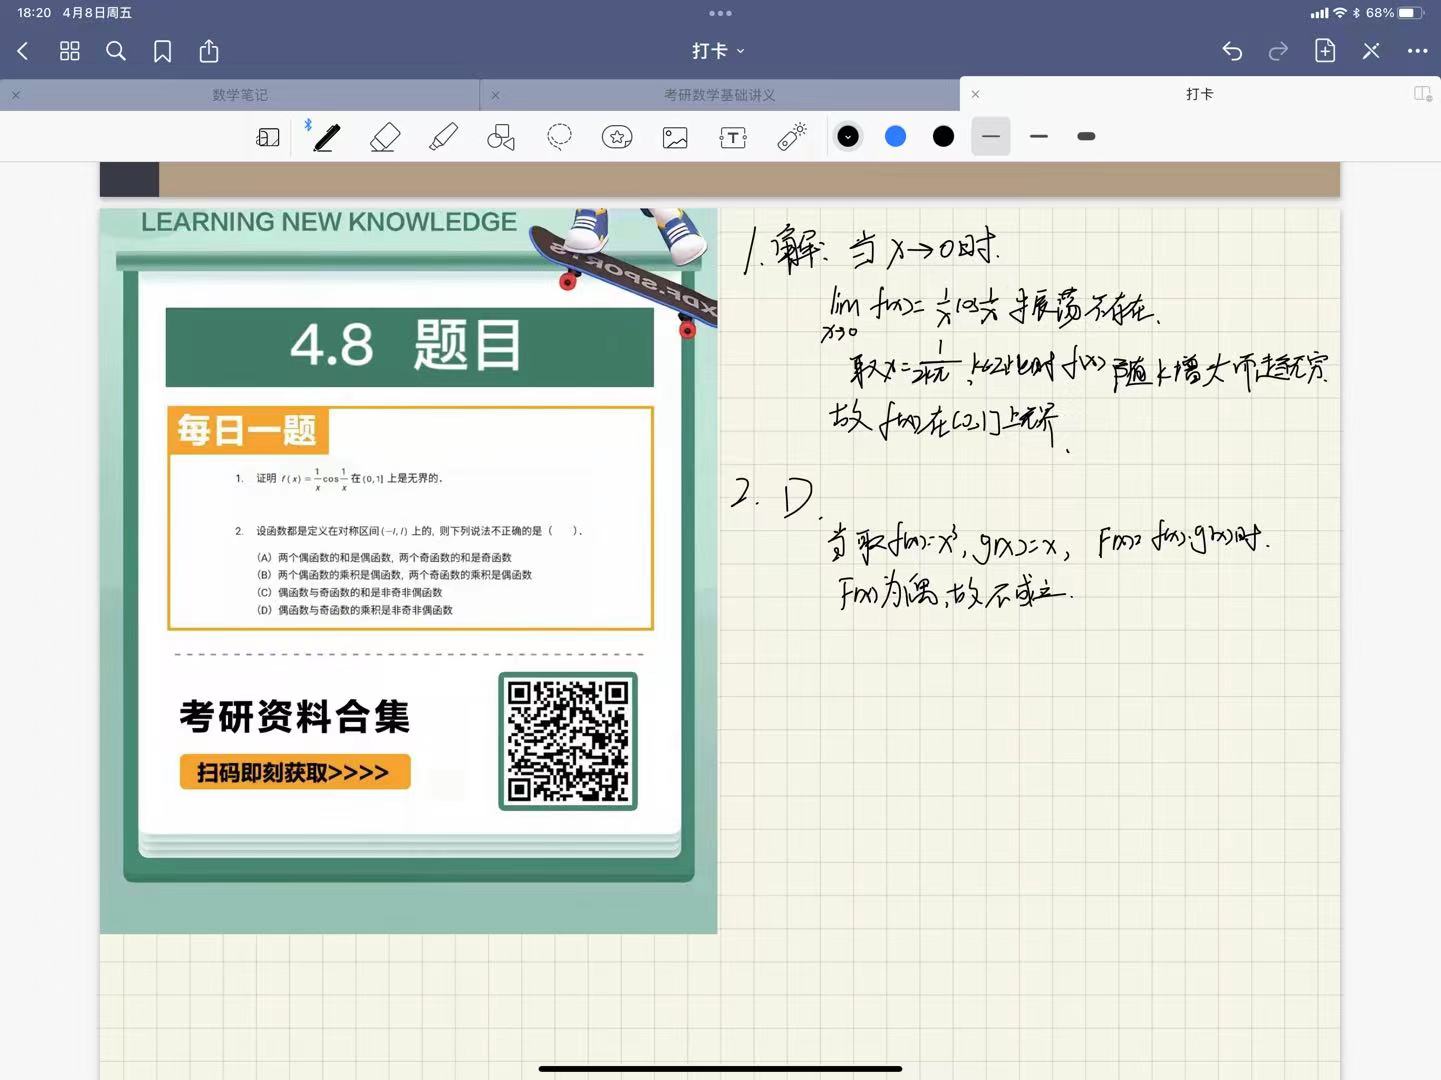 18:20 4月8日周五
68%
打卡
数学笔记
考研数学基础讲义
打卡
LEARNING NEW KNOWLEDGE
XDF.SPORTS
4.8 题目
每日一题
1. 证明 f(x)=1/x cos 1/x 在(0,1] 上是无界的.
2. 设函数都是定义在对称区间(-l,l) 上的, 则下列说法不正确的是 ( ).
(A) 两个偶函数的和是偶函数, 两个奇函数的和是奇函数
(B) 两个偶函数的乘积是偶函数, 两个奇函数的乘积是偶函数
(C) 偶函数与奇函数的和是非奇非偶函数
(D) 偶函数与奇函数的乘积是非奇非偶函数
考研资料合集
扫码即刻获取>>>>
1. 解: 当 x→0时.
lim x→0 f(x)= 1/x cos 1/x 振荡不存在.
取x= 1/2kπ, k∈Z 此时 f(x) 随k增大而趋无穷.
故 f(x)在(0,1]上无界.
2. D.
当取f(x)=x³, g(x)=x, F(x)= f(x)·g(x)时.
F(x)为偶,故不成立.